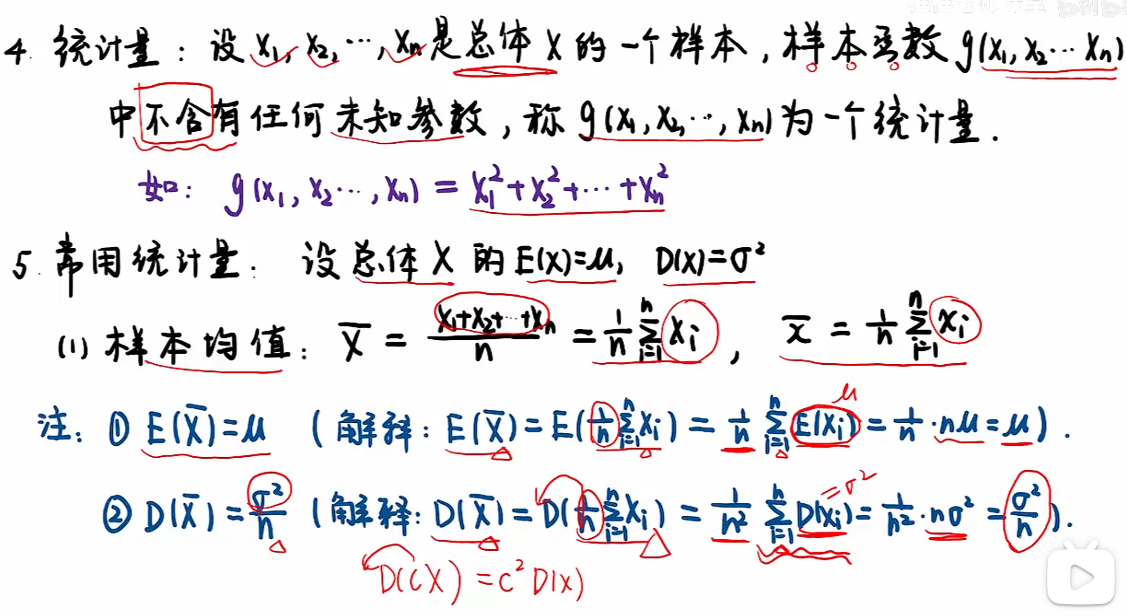 4. 统计量：设 X₁, X₂, ⋯, Xₙ 是总体 X 的一个样本，样本函数 g(X₁, X₂ ⋯ Xₙ)
中不含有任何未知参数，称 g(X₁, X₂, ⋯, Xₙ) 为一个统计量.
如：g(X₁, X₂ ⋯, Xₙ) = X₁² + X₂² + ⋯ + Xₙ²
5. 常用统计量：设总体 X 的 E(X)=μ, D(X)=σ²
(1) 样本均值：X̄ = (X₁+X₂+⋯+Xₙ)/n = 1/n ∑ᵢ₌₁ⁿ Xᵢ , x̄ = 1/n ∑ᵢ₌₁ⁿ xᵢ
μ
注：① E(X̄)=μ (解释：E(X̄) = E(1/n ∑ᵢ₌₁ⁿ Xᵢ) = 1/n ∑ᵢ₌₁ⁿ E(Xᵢ) = 1/n · nμ = μ).
=σ²
② D(X̄) = σ²/n (解释：D(X̄) = D(1/n ∑ᵢ₌₁ⁿ Xᵢ) = 1/n² ∑ᵢ₌₁ⁿ D(Xᵢ) = 1/n² · nσ² = σ²/n).
D(CX) = C² D(X)